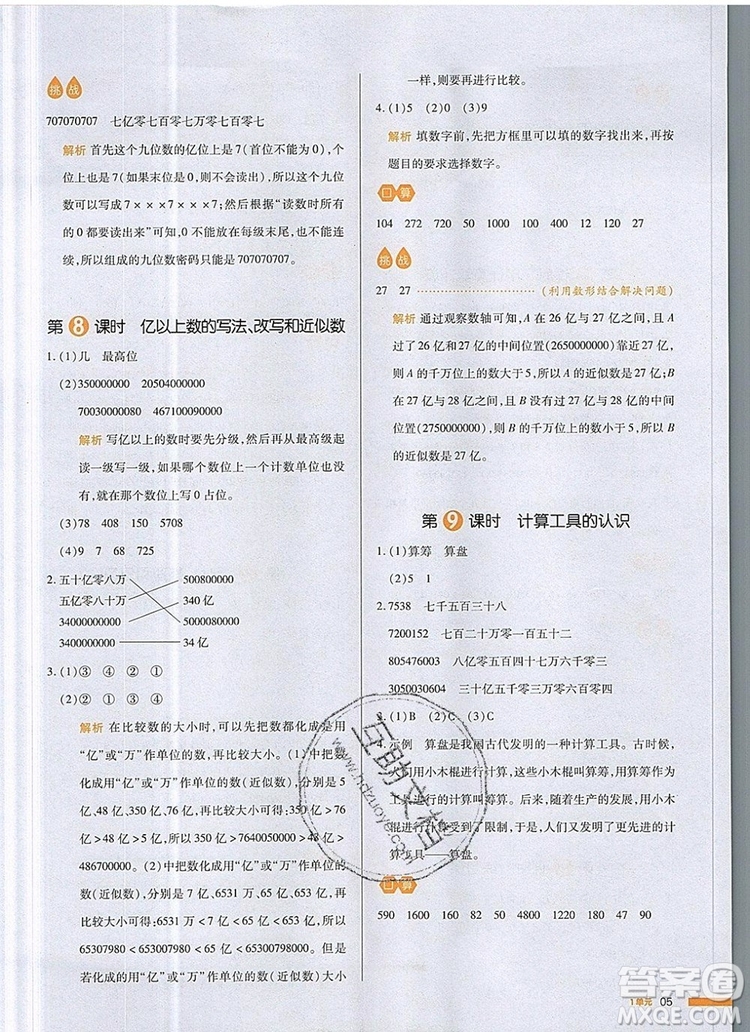 挑 战
707070707 七亿零七百零七万零七百零七
解析 首先这个九位数的亿位上是7(首位不能为0),个
位上也是7(如果末位是0,则不会读出),所以这个九位
数可以写成7×××7×××7;然后根据“读数时所有
的0都要读出来”可知,0不能放在每级末尾,也不能连
续,所以组成的九位数密码只能是707070707。
第8课时 亿以上数的写法、改写和近似数
1. (1)几 最高位
(2)350000000 20504000000
70030000080 467100090000
解析 写亿以上的数时要先分级,然后再从最高级起
读一级写一级,如果哪个数位上一个计数单位也没
有,就在那个数位上写0占位。
(3)78 480 150 5708
(4)9 7 68 725
2. 五十亿零八万 500800000
五亿零八十万 340亿
34000000000 5000080000
3400000000 34亿
3. (1)③ ④ ② ①
(2)②④①③
解析 在比较数的大小时,可以先把数都化成是用
“亿”或“万”作单位的数,再比较大小。(1)中把数
化成用“亿”作单位的数(近似数),分别是5
亿、48亿、350亿、76亿,再比较大小,350亿>76
亿>48亿>5亿,所以350亿>7640050000>48亿>
486700000。(2)中把数化成用“亿”或“万”作单位的
数(近似数),分别是7亿、6531万、65亿、6531万,
再比较大小,6531万<7亿<65亿,所以
65307980<65310000<7亿<6530798000。但是,
若化成用“亿”或“万”作单位的数(近似数)大小
一样,则要再进行比较。
4. (1)5 (2)0 (3)9
解析 填数字前,先把方框里可以填的数字找出来,再按
题目的要求选择数字。
口 算
104 272 720 50 1000 100 400 12 120 27
挑 战
27 27 (利用数形结合解决问题)
解析 通过观察数轴可知,A在26亿与27亿之间,且
过了26亿和27亿的中间位置(2650000000)靠近27亿,
则A的千万位上的数大于5,所以A的近似数是27亿;B
在27亿与28亿之间,没有超过27亿与28亿的中间
位置(2750000000),则B的千万位上的数小于5,所以B
的近似数是27亿。
第9课时 计算工具的认识
1. (1)算筹 算盘
(2)5 1
2. 7538 七千五百三十八
7200152 七百二十万零一百五十二
805476003 八亿零五百四十七万六千零三
3050030604 三十亿五千零三万零六百零四
3. (1)B (2)C (3)C
示例 算盘是我国古代发明的一种计算工具。古时候,
们用小木棍进行计算,这些小木棍叫算筹,用算筹作为
工具进行的计算叫筹算。后来,随着生产的发展,用小木
棍进行计算受到了限制,于是,人们又发明了更先进的计
算工具——算盘。
口 算
590 1600 160 82 60 1800 4900 920 47 90
互助文档
www.hdzuoye.com
1单元 05
答案圈
MXQE.COM